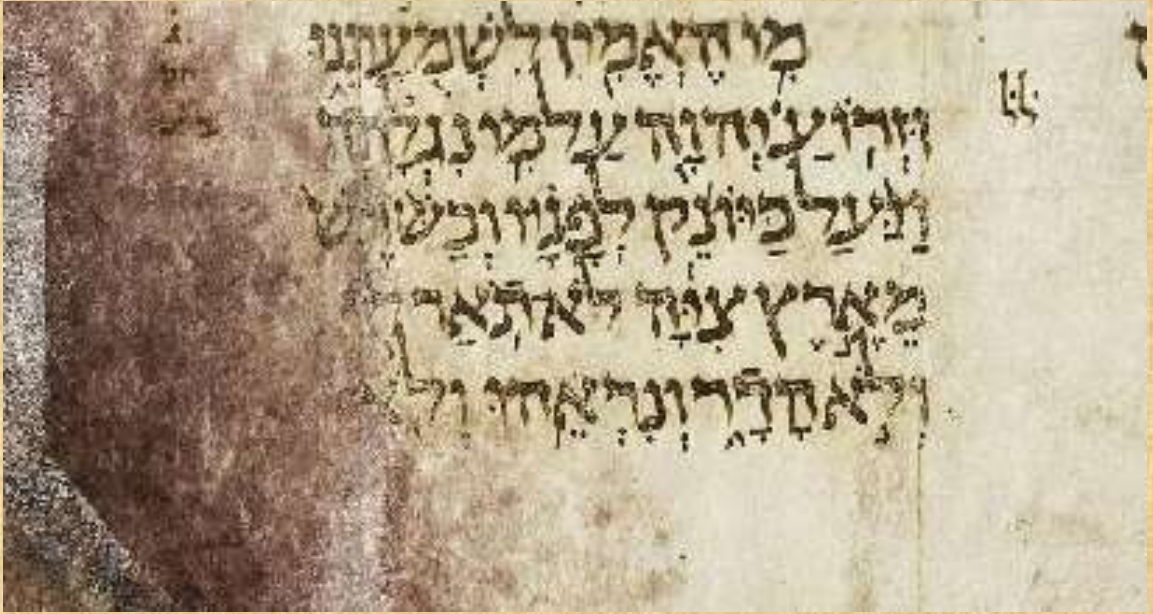 מִי הֶאֱמִין לִשְׁמֻעָתֵנוּ
וּזְרוֹעַ יְהוָה עַל מִי נִגְלָתָה
וַיַּעַל כַּיּוֹנֵק לְפָנָיו וְכַשֹּׁרֶשׁ
מֵאֶרֶץ צִיָּה לֹא תֹאַר
וְלֹא הָדָר וְנִרְאֵהוּ וְלֹא